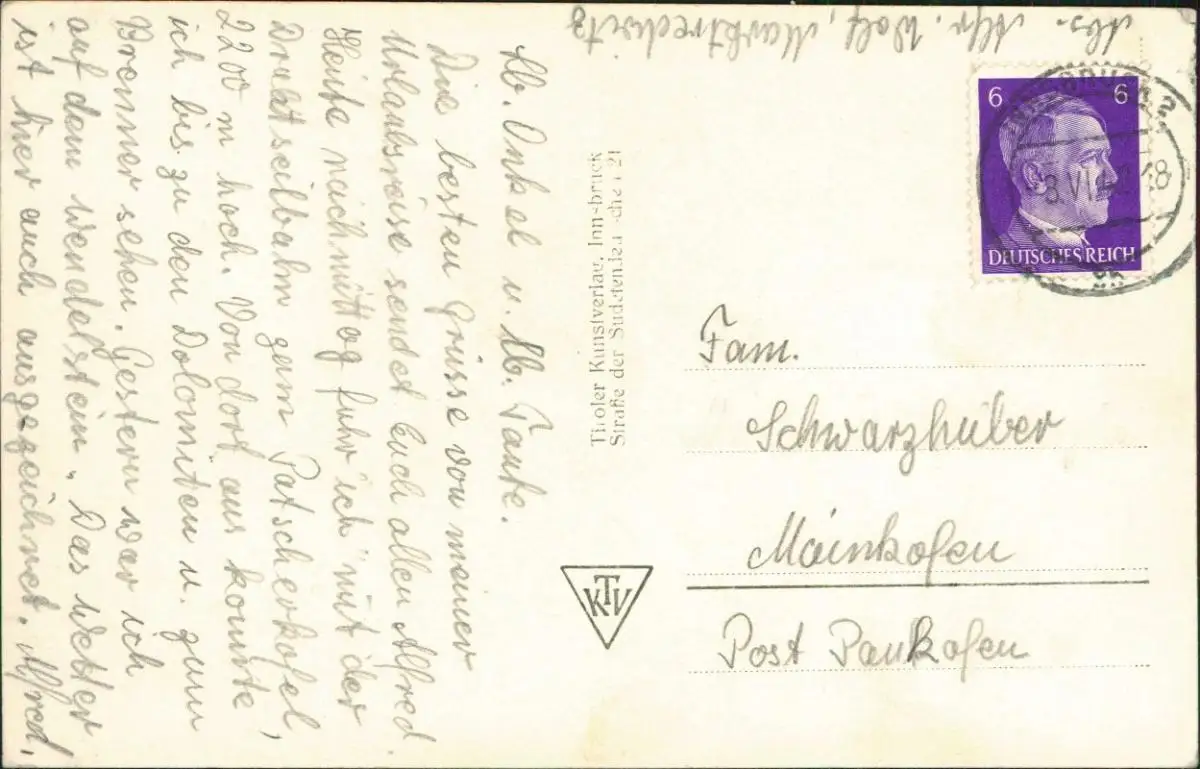 Abs. Alfr. Wolf, Marktredwitz
Lb. Onkel u. lb. Tante.
Die besten Grüsse von meiner
Urlaubsreise sendet Euch allen Alfred.
Heute nachmittag fuhr ich mit der
Drahtseilbahn zum Patscherkofel,
2200 m hoch. Von dort aus konnte
ich bis zu den Dolomiten u. zum
Brenner sehen. Gestern war ich
auf dem Wendelstein. Das Wetter
ist hier auch ausgezeichnet. Alfred.
Tiroler Kunstverlag, Innsbruck
Straße der Sudetendeutschen 21
KTV
6 6
DEUTSCHES REICH
Fam.
Schwarzhuber
Mainkofen
Post Pankofen